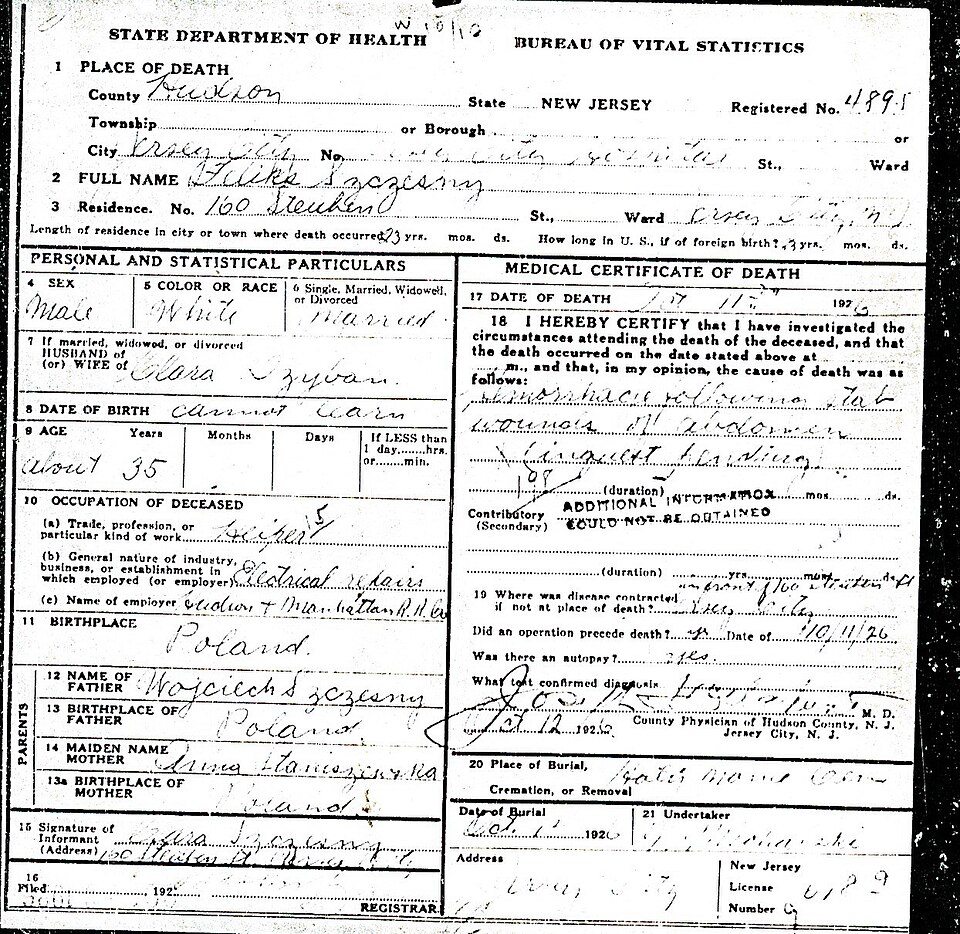 STATE DEPARTMENT OF HEALTH BUREAU OF VITAL STATISTICS
1 PLACE OF DEATH
County Hudson State NEW JERSEY Registered No. 4895
Township or Borough or
City Jersey City No. St., Ward
2 FULL NAME Feliks Szczesny
3 Residence. No. 160 Steuben St., Ward Jersey City, NJ
Length of residence in city or town where death occurred 23 yrs. mos. ds. How long in U. S., if of foreign birth? yrs. mos. ds.
PERSONAL AND STATISTICAL PARTICULARS
4 SEX
Male
5 COLOR OR RACE
White
6 Single, Married, Widowed, or Divorced
Married
7 If married, widowed, or divorced
HUSBAND of
(or) WIFE of Clara
8 DATE OF BIRTH cannot learn
9 AGE Years Months Days If LESS than
1 day......hrs.
or......min.
about 35
10 OCCUPATION OF DECEASED
(a) Trade, profession, or
particular kind of work Helper 15
(b) General nature of industry,
business, or establishment in
which employed (or employer) Electrical repairs
(c) Name of employer Hudson + Manhattan R.R. Co
11 BIRTHPLACE
Poland.
PARENTS
12 NAME OF
FATHER Wojciech Szczesny
13 BIRTHPLACE OF
FATHER Poland.
14 MAIDEN NAME
MOTHER Anna Staniszewska
13a BIRTHPLACE OF
MOTHER Poland.
15 Signature of
Informant Clara Szczesny
(Address) 160 Steuben St. Jersey City
16
Filed 192
REGISTRAR
MEDICAL CERTIFICATE OF DEATH
17 DATE OF DEATH Oct 11 1926
18 I HEREBY CERTIFY that I have investigated the
circumstances attending the death of the deceased, and that
the death occurred on the date stated above at
m., and that, in my opinion, the cause of death was as
follows:
Hemorrhage following stab
wounds of abdomen
(inquest pending)
198
(duration) mos. ds.
Contributory
(Secondary)
ADDITIONAL INFORMATION
COULD NOT BE OBTAINED
(duration) yrs. mos. ds.
in front of 160 Steuben St
19 Where was disease contracted
if not at place of death? Jersey City
Did an operation precede death? Date of 10/11/26
Was there an autopsy? yes.
What test confirmed diagnosis
M. D.
Oct 12 1926 County Physician of Hudson County, N. J.
Jersey City, N. J.
20 Place of Burial,
Cremation, or Removal Holy Name Cem
Date of Burial
Oct. 1926
21 Undertaker
Address
Jersey City
New Jersey
License
Number